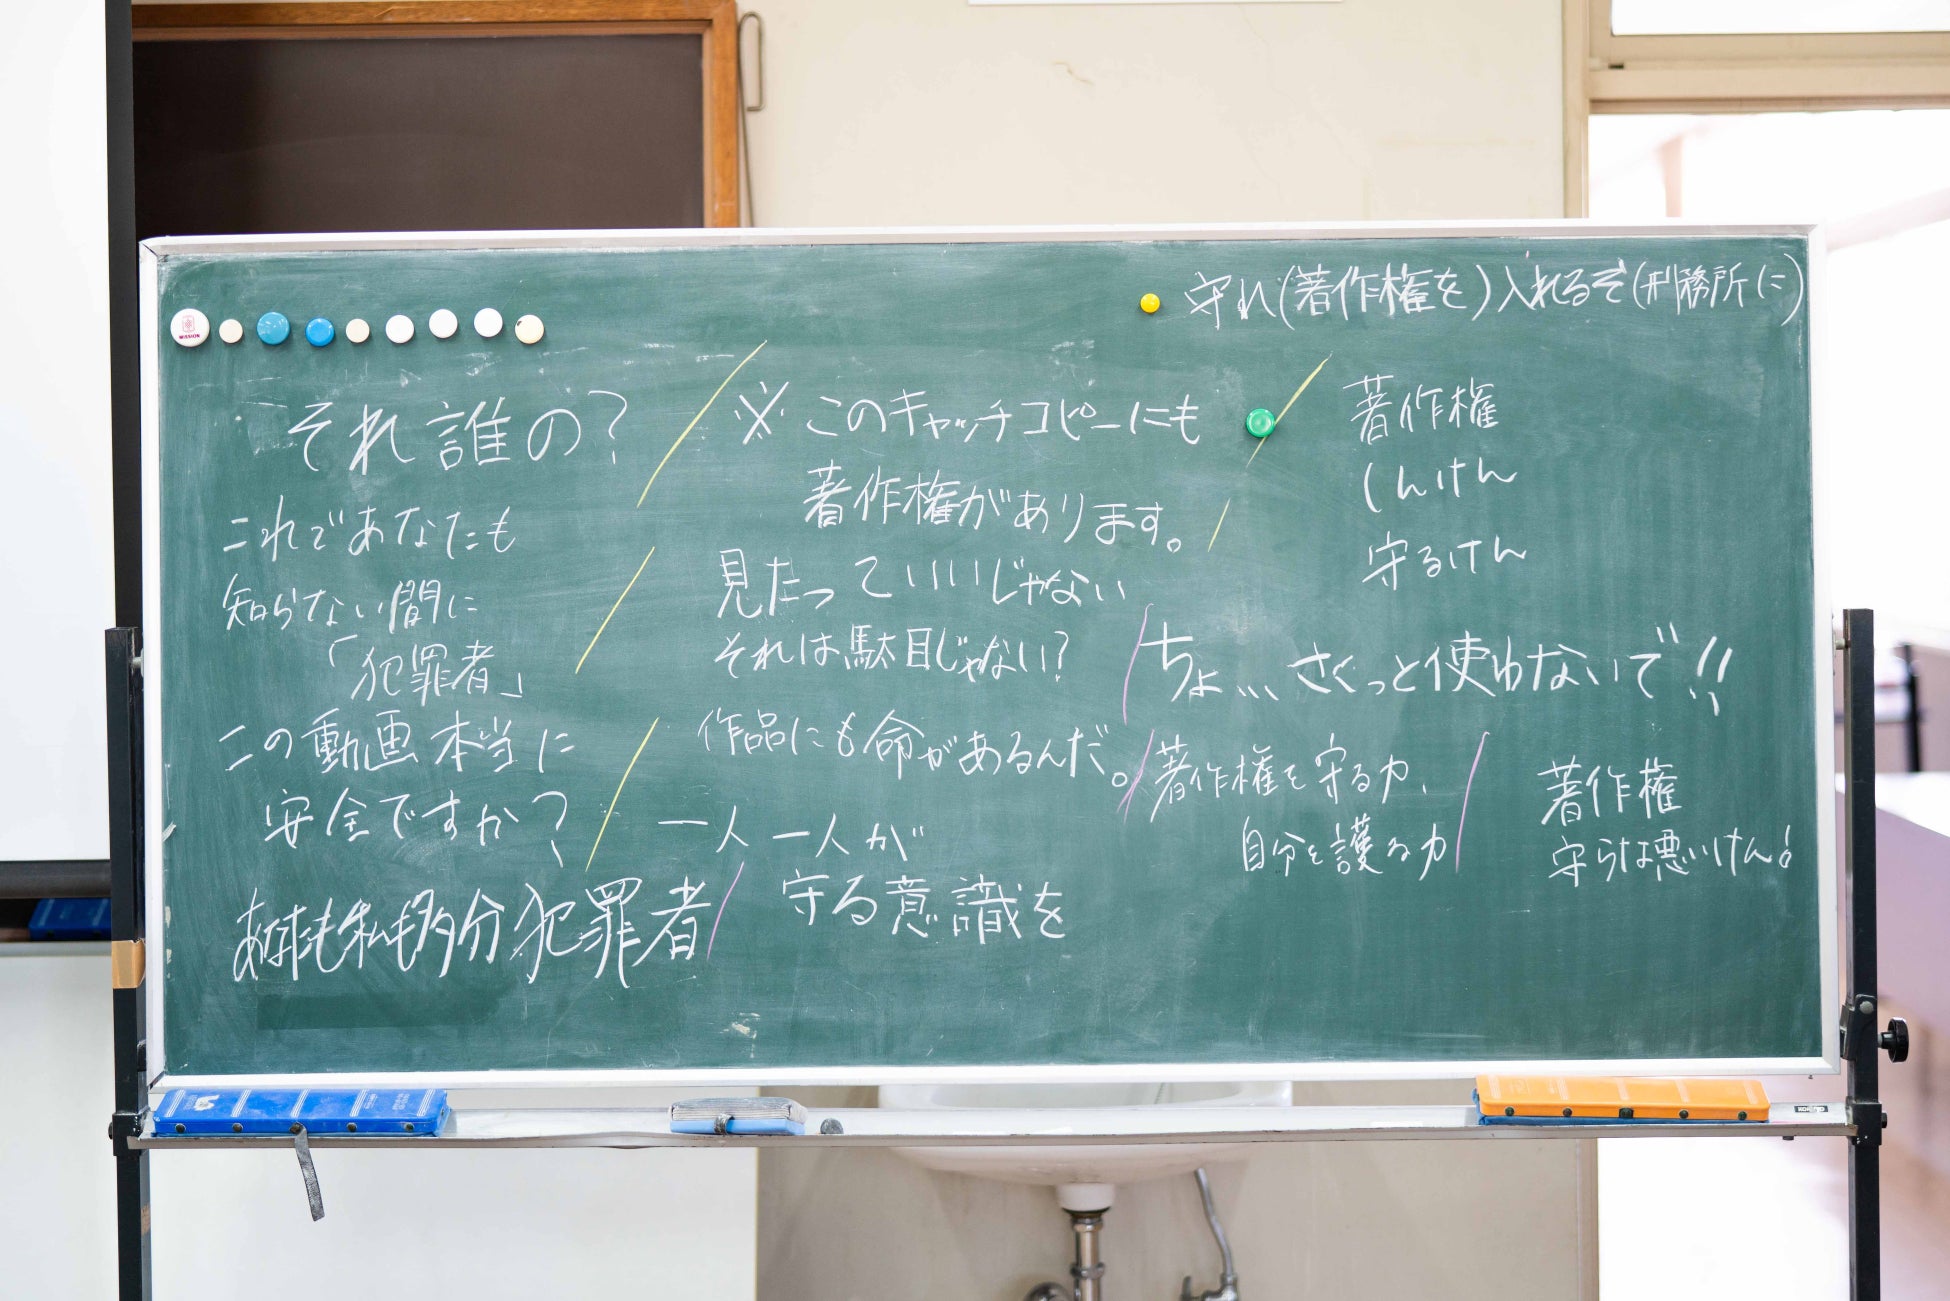 守れ(著作権を)入れるぞ(刑務所に)
それ誰の?
これであなたも
知らない間に
「犯罪者」
この動画本当に
安全ですか?
あなたも私も多分犯罪者
※このキャッチコピーにも
著作権があります。
見たっていいじゃない
それは駄目じゃない?
作品にも命があるんだ。
一人一人が
守る意識を
著作権
しんけん
守るけん
ちょ... さくっと使わないで!!
著作権を守る力、
自分を護る力
著作権
守らな悪いけん!
MISSION